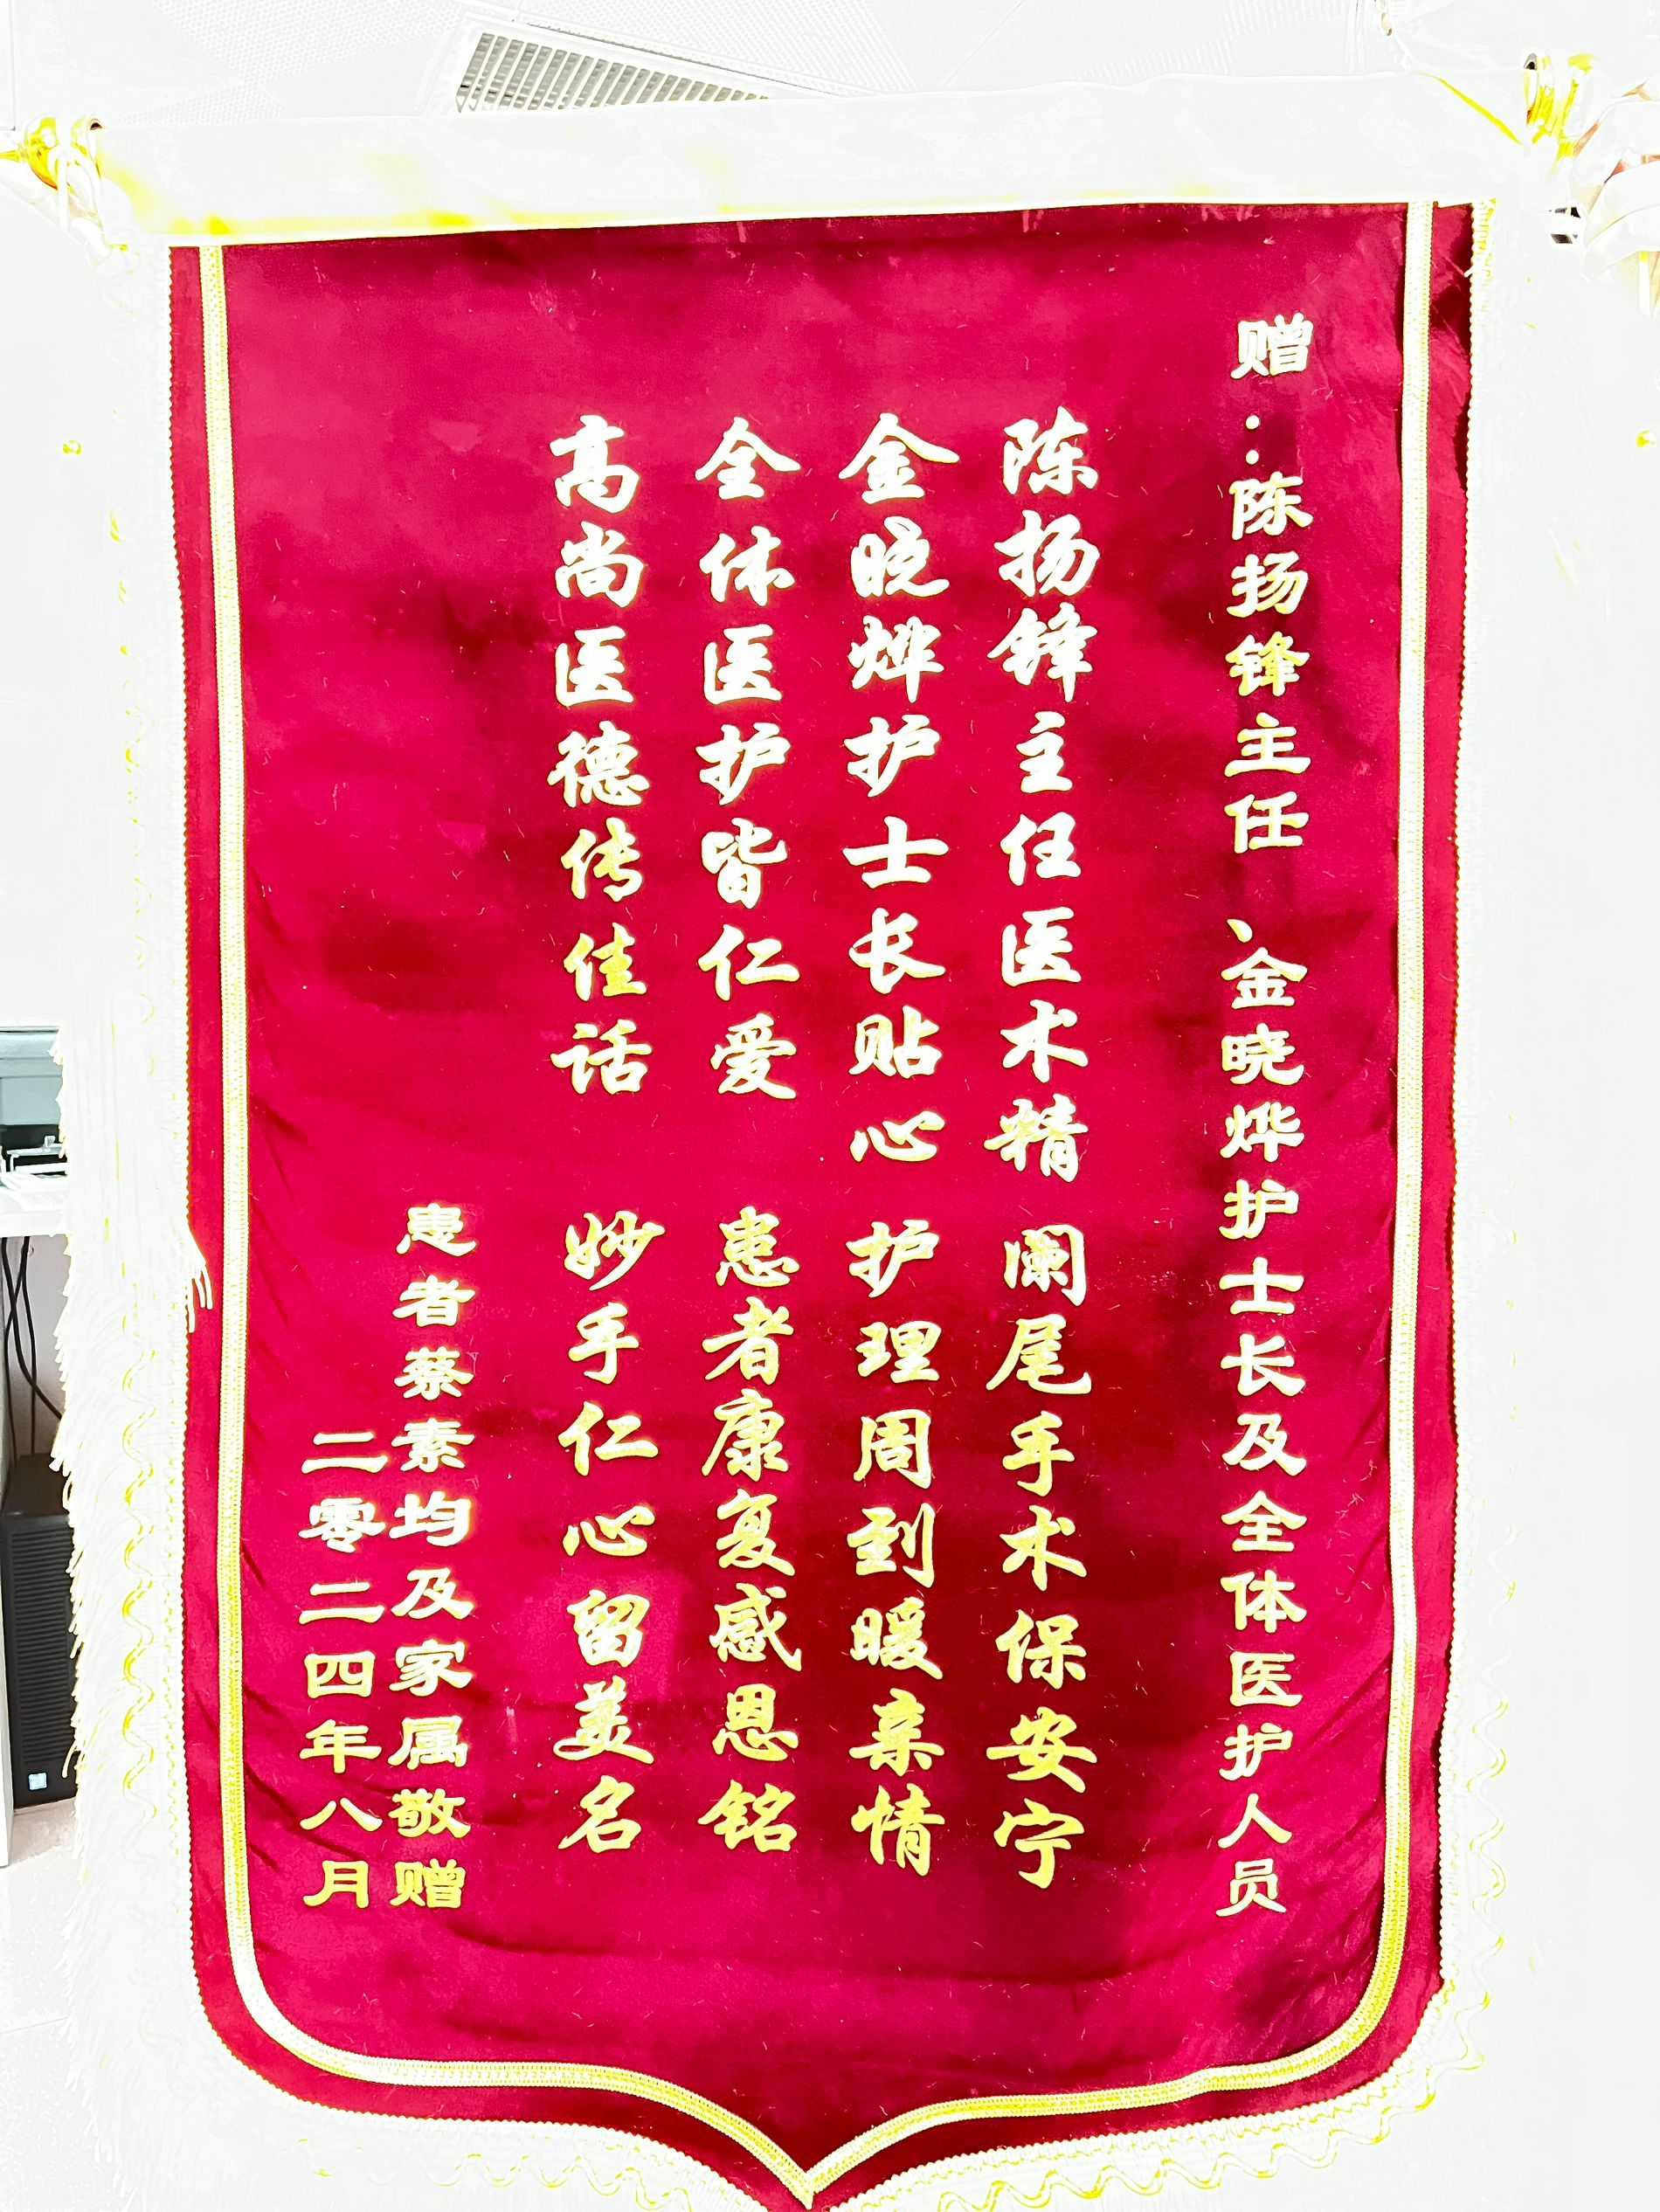 赠：陈扬锋主任、金晓烨护士长及全体医护人员
陈扬锋主任医术精 阑尾手术保安宁
金晓烨护士长贴心 护理周到暖亲情
全体医护皆仁爱 患者康复感恩铭
高尚医德传佳话 妙手仁心留美名
患者蔡素均及家属敬赠
二零二四年八月